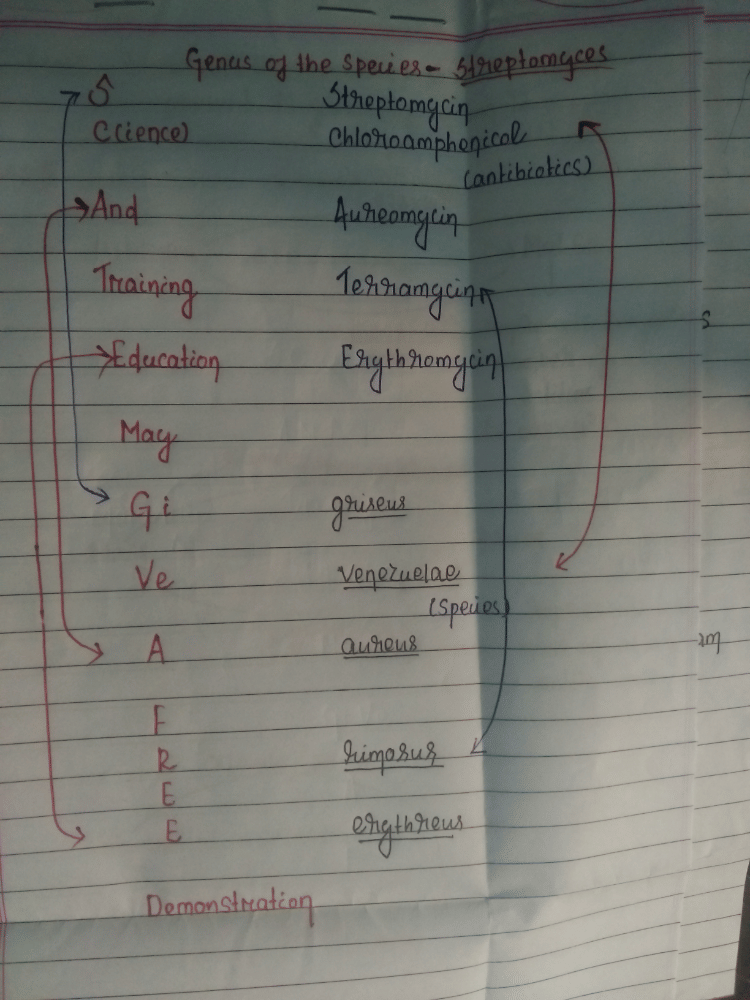 Genus of the species - Streptomyces
S Streptomycin
C(ience) Chloroamphenicol
(antibiotics)
And Aureomycin
Training Terramycin
s
Education Erythromycin
May
Gi griseus
Ve venezuelae
(species)
A aureus
F
R rimosus
E
E erythreus
Demonstration